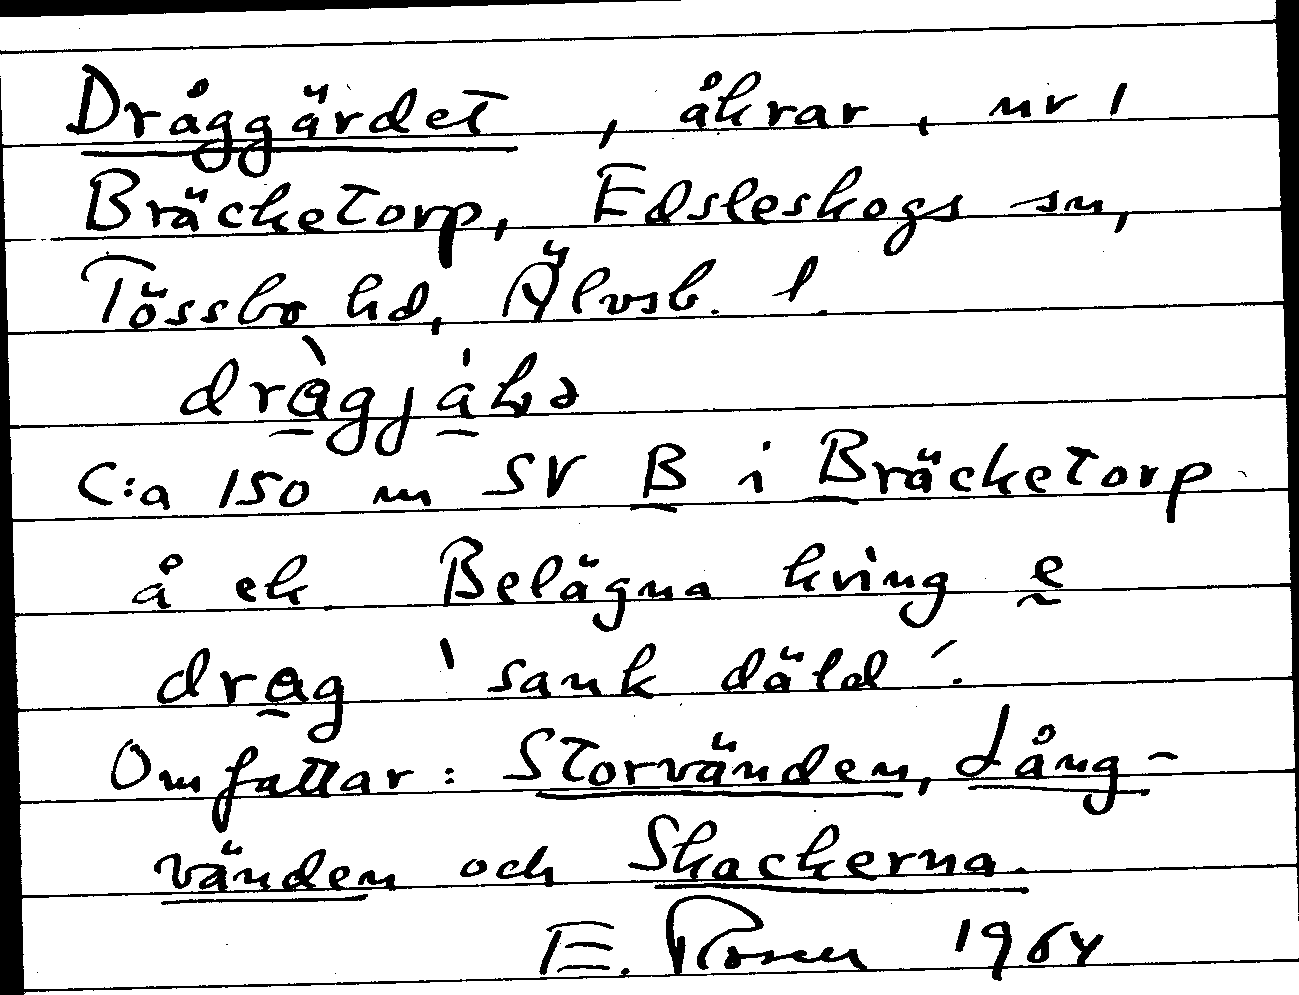 Dråggärdet, åkrar, nr 1
Bräcketorp, Edsleskogs sn,
Tössbo hd, Älvsb. l.
C:a 150 m SV B i Bräcketorp
å ek Belägna kring e
drag 'sank däld'.
Omfattar: Storvänden, Lång-
vänden och Skackerna.
E. 1964